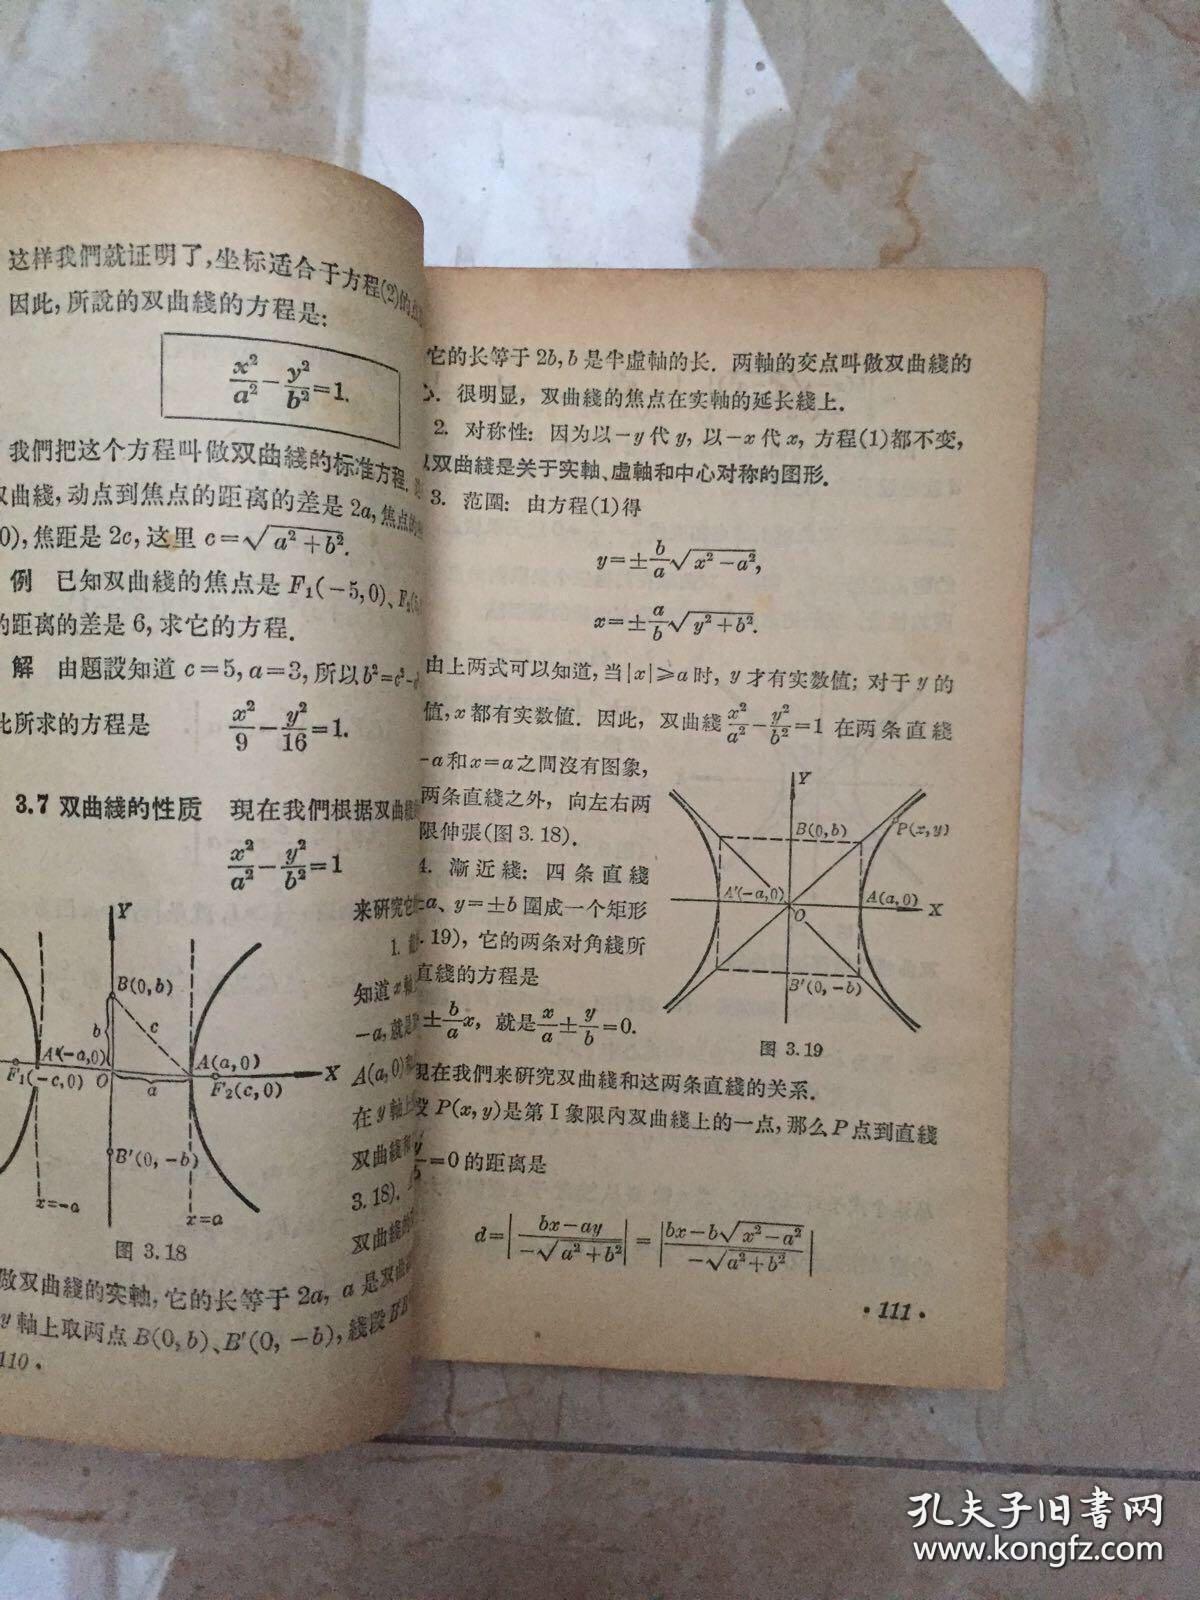 这样我們就证明了,坐标适合于方程(2)的点
因此,所說的双曲綫的方程是:
x²/a² − y²/b² = 1.
我們把这个方程叫做双曲綫的标准方程.
双曲綫,动点到焦点的距离的差是 2a, 焦点的
0), 焦距是 2c, 这里 c=√(a²+b²).
例 已知双曲綫的焦点是 F₁(−5,0)、F₂(5,
的距离的差是 6, 求它的方程.
解 由題設知道 c=5, a=3, 所以 b²=c²−
此所求的方程是 x²/9 − y²/16 = 1.
3.7 双曲綫的性质 現在我們根据双曲綫
x²/a² − y²/b² = 1
来研究它
1.
知道 x 軸
−a, 就是
A(a,0)
在 y 軸上
双曲綫和
3.18).
双曲綫的
Y
B(0,b)
b
c
A'(−a,0)
A(a,0)
X
F₁(−c,0)
O
a
F₂(c,0)
B'(0,−b)
x=−a
x=a
图 3.18
做双曲綫的实軸, 它的长等于 2a, a 是双曲
y 軸上取两点 B(0,b)、B'(0,−b), 綫段 B'B
110 ·
它的长等于 2b, b 是半虛軸的长. 两軸的交点叫做双曲綫的
心. 很明显, 双曲綫的焦点在实軸的延长綫上.
2. 对称性: 因为以 −y 代 y, 以 −x 代 x, 方程(1)都不变,
以双曲綫是关于实軸、虛軸和中心对称的图形.
3. 范圍: 由方程(1)得
y=±b/a √(x²−a²),
x=±a/b √(y²+b²).
由上两式可以知道, 当|x|⩾a 时, y 才有实数值; 对于 y 的
值, x 都有实数值. 因此, 双曲綫 x²/a² − y²/b² = 1 在两条直綫
−a 和 x=a 之間沒有图象,
两条直綫之外, 向左右两
限伸張(图 3.18).
4. 漸近綫: 四条直綫
±a、y=±b 圍成一个矩形
. 19), 它的两条对角綫所
直綫的方程是
±b/a x, 就是 x/a ± y/b = 0.
Y
B(0,b)
P(x,y)
A'(−a,0)
A(a,0)
X
O
B'(0,−b)
图 3.19
現在我們来研究双曲綫和这两条直綫的关系.
設 P(x,y)是第 I 象限內双曲綫上的一点, 那么 P 点到直綫
y/b=0 的距离是
d=|(bx−ay)/(−√(a²+b²))| = |(bx−b√(x²−a²))/(−√(a²+b²))|
· 111 ·
孔夫子旧书网
www.kongfz.com